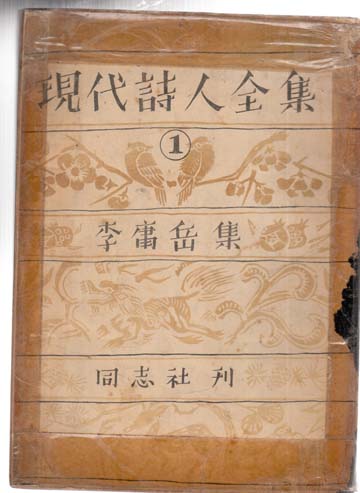 現代詩人全集
①
李庸岳集
同志社刊